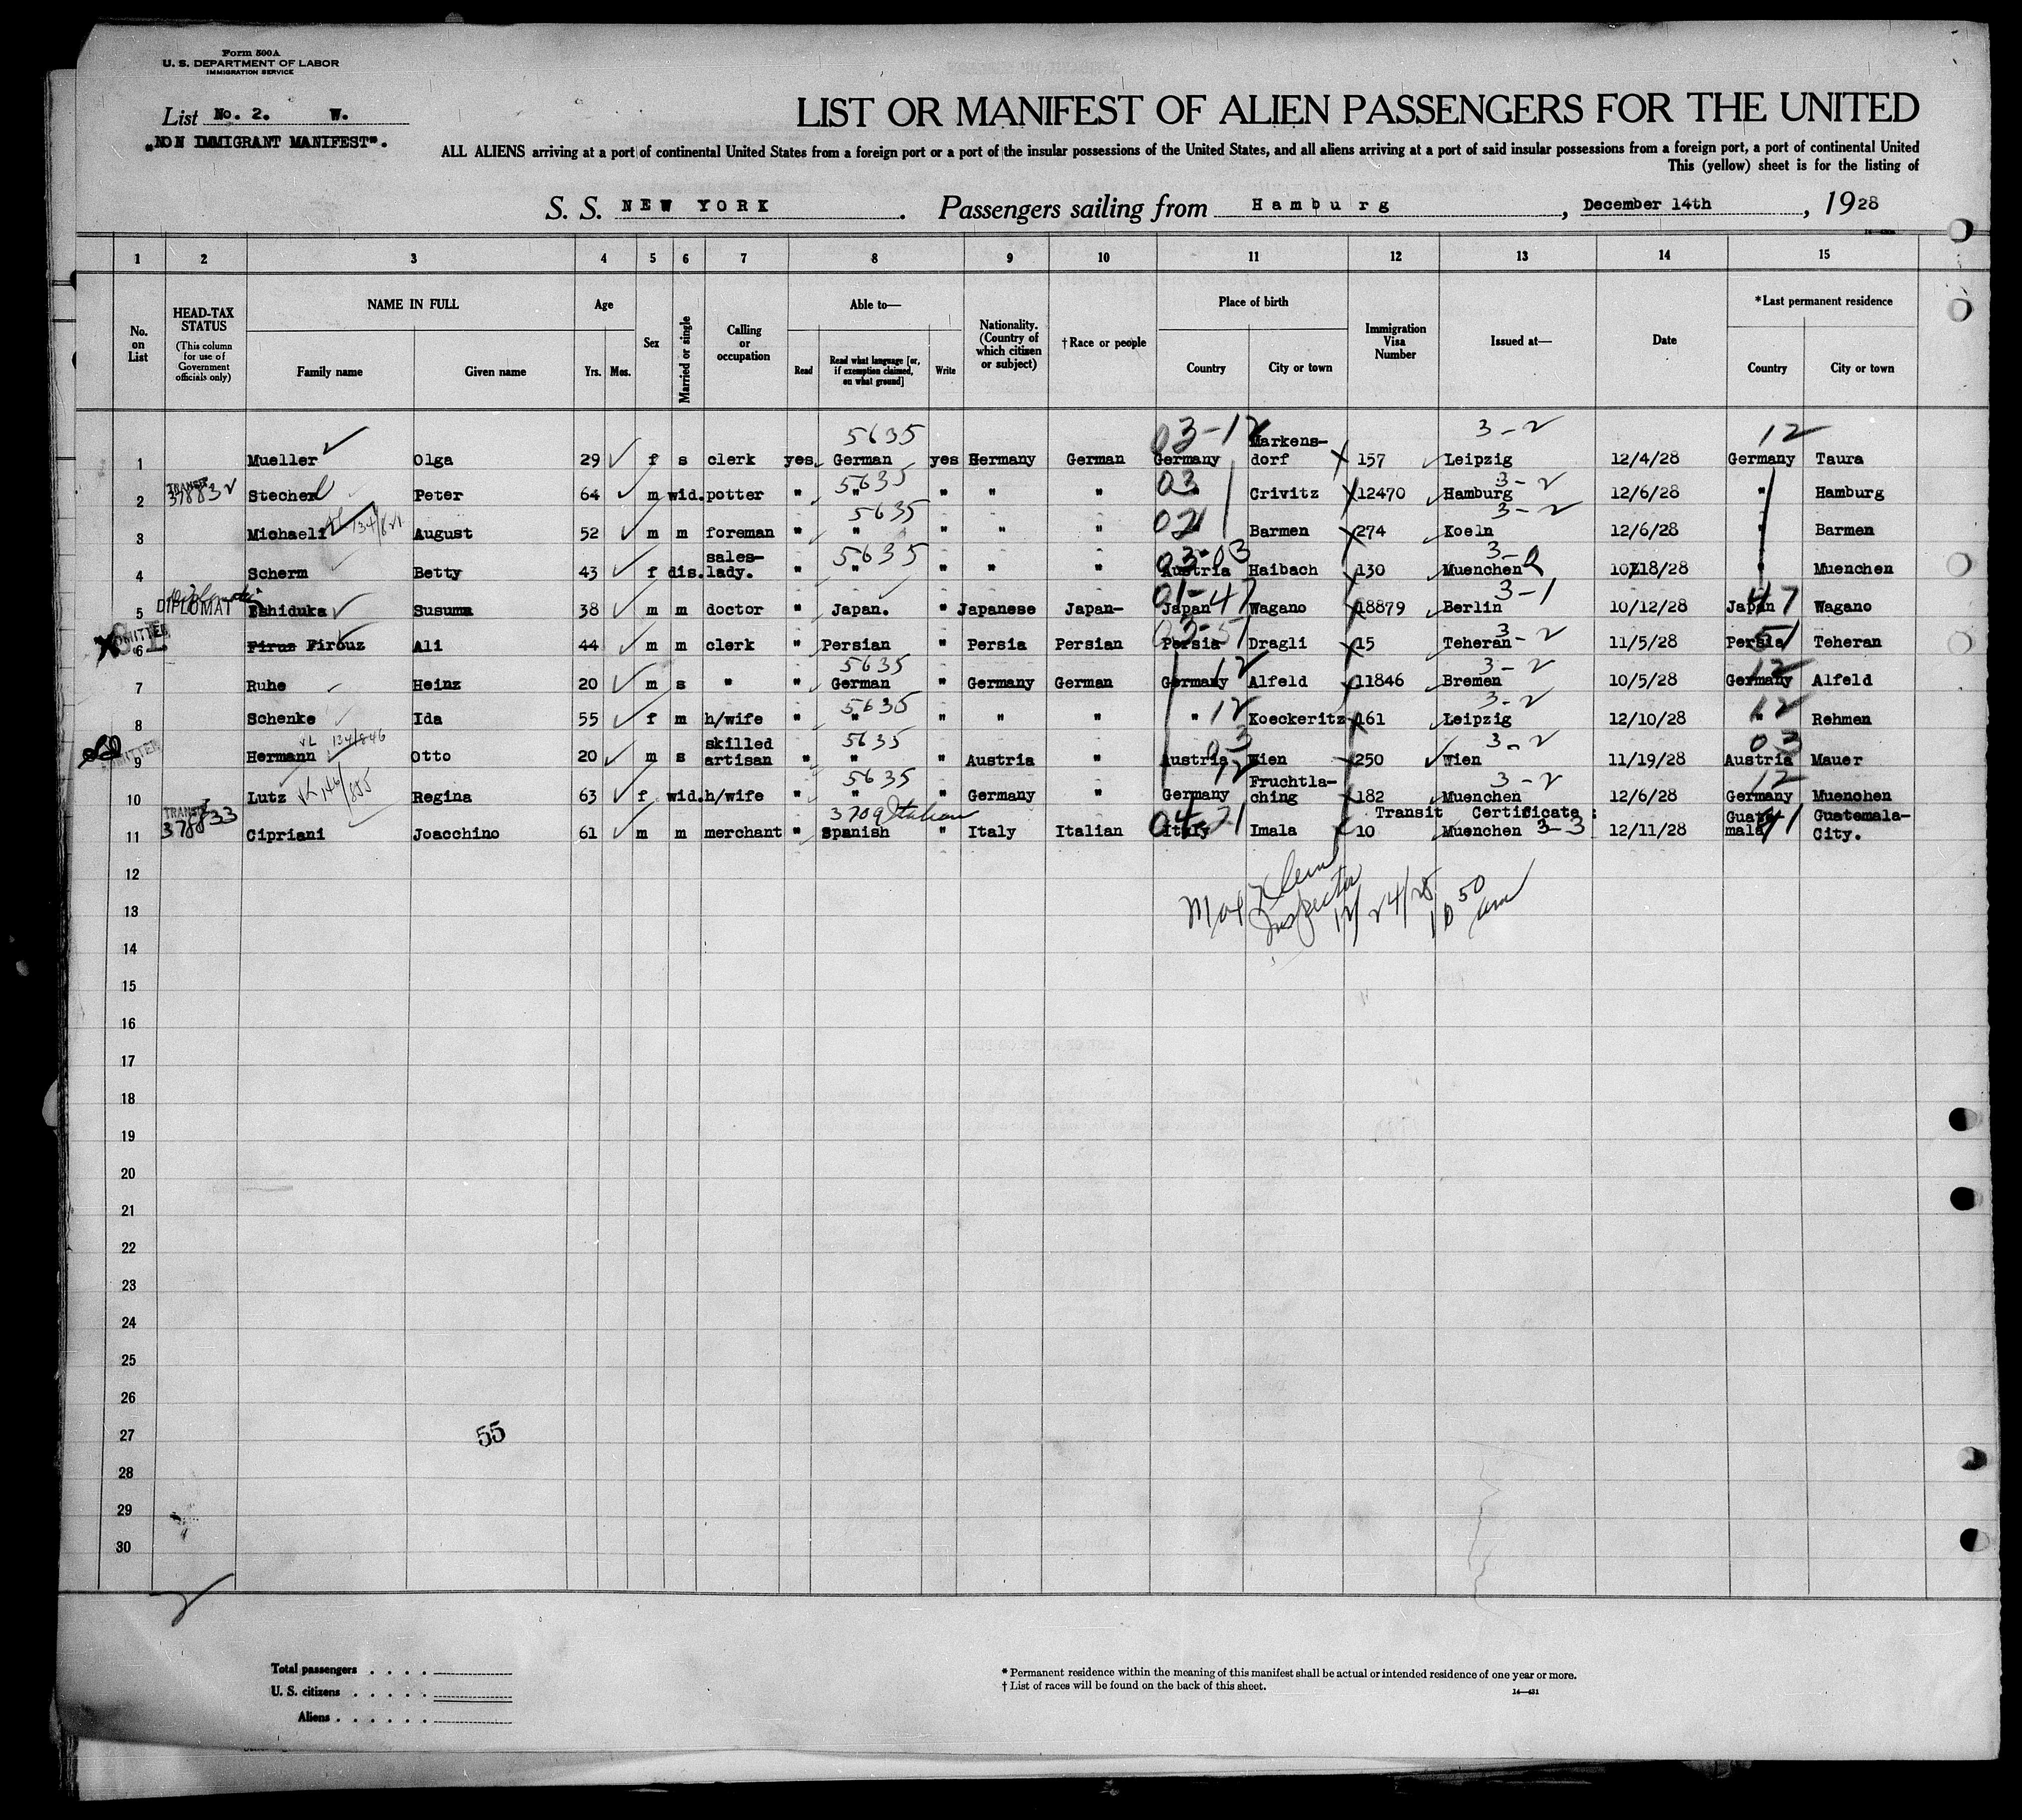 Form 500A
U. S. DEPARTMENT OF LABOR
IMMIGRATION SERVICE
List No. 2. W.
„NON IMMIGRANT MANIFEST".
LIST OR MANIFEST OF ALIEN PASSENGERS FOR THE UNITED
ALL ALIENS arriving at a port of continental United States from a foreign port or a port of the insular possessions of the United States, and all aliens arriving at a port of said insular possessions from a foreign port, a port of continental United
This (yellow) sheet is for the listing of
S. S. NEW YORK. Passengers sailing from Hamburg, December 14th, 1928
1 2 3 4 5 6 7 8 9 10 11 12 13 14 15
No. on List
HEAD-TAX STATUS (This column for use of Government officials only)
NAME IN FULL Family name Given name
Age Yrs. Mos.
Sex
Married or single
Calling or occupation
Able to— Read Read what language [or, if exemption claimed, on what ground] Write
Nationality. (Country of which citizen or subject)
†Race or people
Place of birth Country City or town
Immigration Visa Number
Issued at—
Date
*Last permanent residence Country City or town
5635 03-12 3-2 12
1 Mueller Olga 29 f s clerk yes German yes Germany German Germany Markens-dorf 157 Leipzig 12/4/28 Germany Taura
TRANSIT 37883 5635 03 3-2
2 Stecher Peter 64 m wid. potter " " " " " Crivitz 12470 Hamburg 12/6/28 " Hamburg
5635 02 3-2
3 Michaeli August 52 m m foreman " " " " " Barmen 274 Koeln 12/6/28 Barmen
5635 03-03 3-2
4 Scherm Betty 43 f dis. sales-lady. " " " " " Austria Haibach 130 Muenchen 10/18/28 " Muenchen
01-47 3-1 47
5 DIPLOMAT Ishiduka Susuma 38 m m doctor " Japan. " Japanese Japan- Japan Wagano 18879 Berlin 10/12/28 Japan Wagano
03-51 3-2 51
6 Firuz Firouz Ali 44 m m clerk " Persian " Persia Persian Persia Dragli 15 Teheran 11/5/28 Persia Teheran
5635 12 3-2 12
7 Ruhe Heinz 20 m s " " German " Germany German Germany Alfeld 11846 Bremen 10/5/28 Germany Alfeld
5635 12 3-2 12
8 Schenke Ida 55 f m h/wife " " " " " " Koeckeritz 161 Leipzig 12/10/28 " Rehmen
134/846 5635 03 3-2 03
9 Hermann Otto 20 m s skilled artisan " " " Austria " Austria Wien 250 Wien 11/19/28 Austria Mauer
5635 12 3-2 12
10 Lutz Regina 63 f wid. h/wife " " " Germany " Germany Fruchtla-ching 182 Muenchen 12/6/28 Germany Muenchen
TRANSIT 378833 3709 Italian 04-21 Transit Certificate : 3-3
11 Cipriani Joacchino 61 m m merchant " Spanish " Italy Italian Italy Imala 10 Muenchen 12/11/28 Guate-mala Guatemala-City.
12
Inspector
12/24/28
10 50 am
13
14
15
16
17
18
19
20
21
22
23
24
25
26
27
55
28
29
30
Total passengers
U. S. citizens
Aliens
* Permanent residence within the meaning of this manifest shall be actual or intended residence of one year or more.
† List of races will be found on the back of this sheet.
14—431